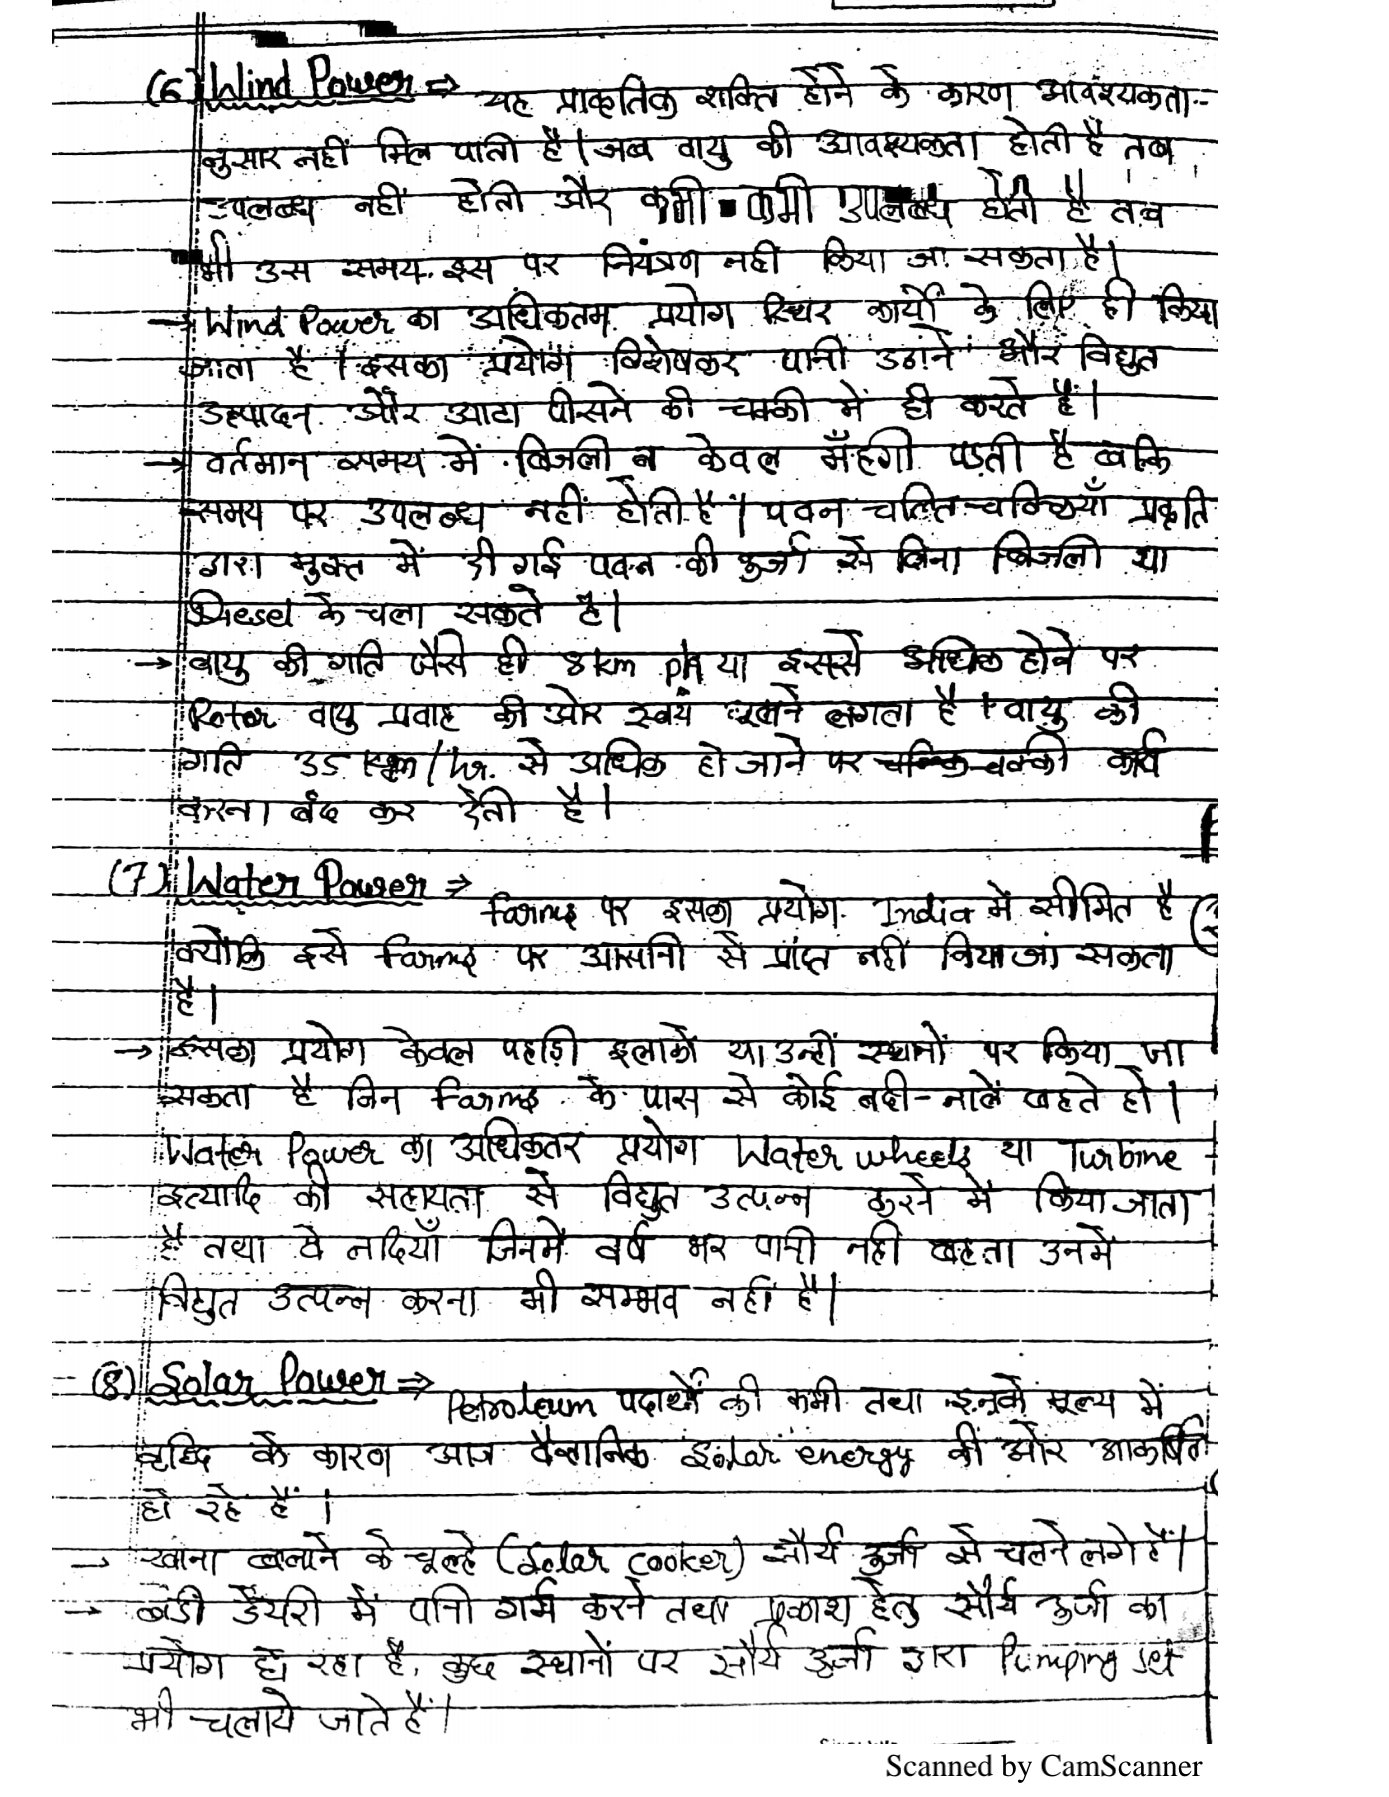 (6) Wind Power ⇒ यह प्राकृतिक शक्ति होने के कारण आवश्यकता-
नुसार नहीं मिल पाती है। जब वायु की आवश्यकता होती है तब
उपलब्ध नहीं होती और कभी-कभी उपलब्ध होती है तब
भी उस समय इस पर नियंत्रण नहीं किया जा सकता है।
→ Wind Power का अधिकतम प्रयोग स्थिर कार्यों के लिए ही किया
जाता है। इसका प्रयोग विशेषकर पानी उठाने और विद्युत
उत्पादन और आटा पीसने की चक्की में ही करते हैं।
→ वर्तमान समय में बिजली न केवल मँहगी पड़ती है बल्कि
समय पर उपलब्ध नहीं होती है। पवन चलित चक्कियाँ प्रकृति
द्वारा मुक्त में दी गई पवन की ऊर्जा से बिना बिजली या
Diesel के चला सकते है।
→ वायु की गति जैसे ही 8 km p/h या इससे अधिक होने पर
Rotor वायु प्रवाह की ओर स्वयं घूमने लगता है। वायु की
गति 35 km/hr. से अधिक हो जाने पर चक्की कार्य
करना बंद कर देती है।
(7) Water Power ⇒ farms पर इसका प्रयोग India में सीमित है
क्योकि इसे farms पर आसानी से प्राप्त नहीं किया जा सकता
है।
→ इसका प्रयोग केवल पहाड़ी इलाकों या उन्हीं स्थानों पर किया जा
सकता है जिन farms के पास से कोई नदी-नालें बहते हो।
Water Power का अधिकतर प्रयोग Water wheels या Turbine
इत्यादि की सहायता से विद्युत उत्पन्न करने में किया जाता
है तथा वे नदियाँ जिनमें वर्ष भर पानी नहीं बहता उनमें
विद्युत उत्पन्न करना भी सम्भव नहीं है।
(8) Solar Power ⇒ Petroleum पदार्थों की कमी तथा इनके मूल्य में
वृद्धि के कारण आज वैज्ञानिक Solar energy की ओर आकर्षित
हो रहे हैं।
→ खाना बनाने के चूल्हे (Solar cooker) सौर्य ऊर्जा से चलने लगे हैं।
→ बडी डेयरी में पानी गर्म करने तथा प्रकाश हेतु सौर्य ऊर्जा का
प्रयोग हो रहा है, कुछ स्थानों पर सौर्य ऊर्जा द्वारा Pumping set
भी चलाये जाते हैं।
Scanned by CamScanner